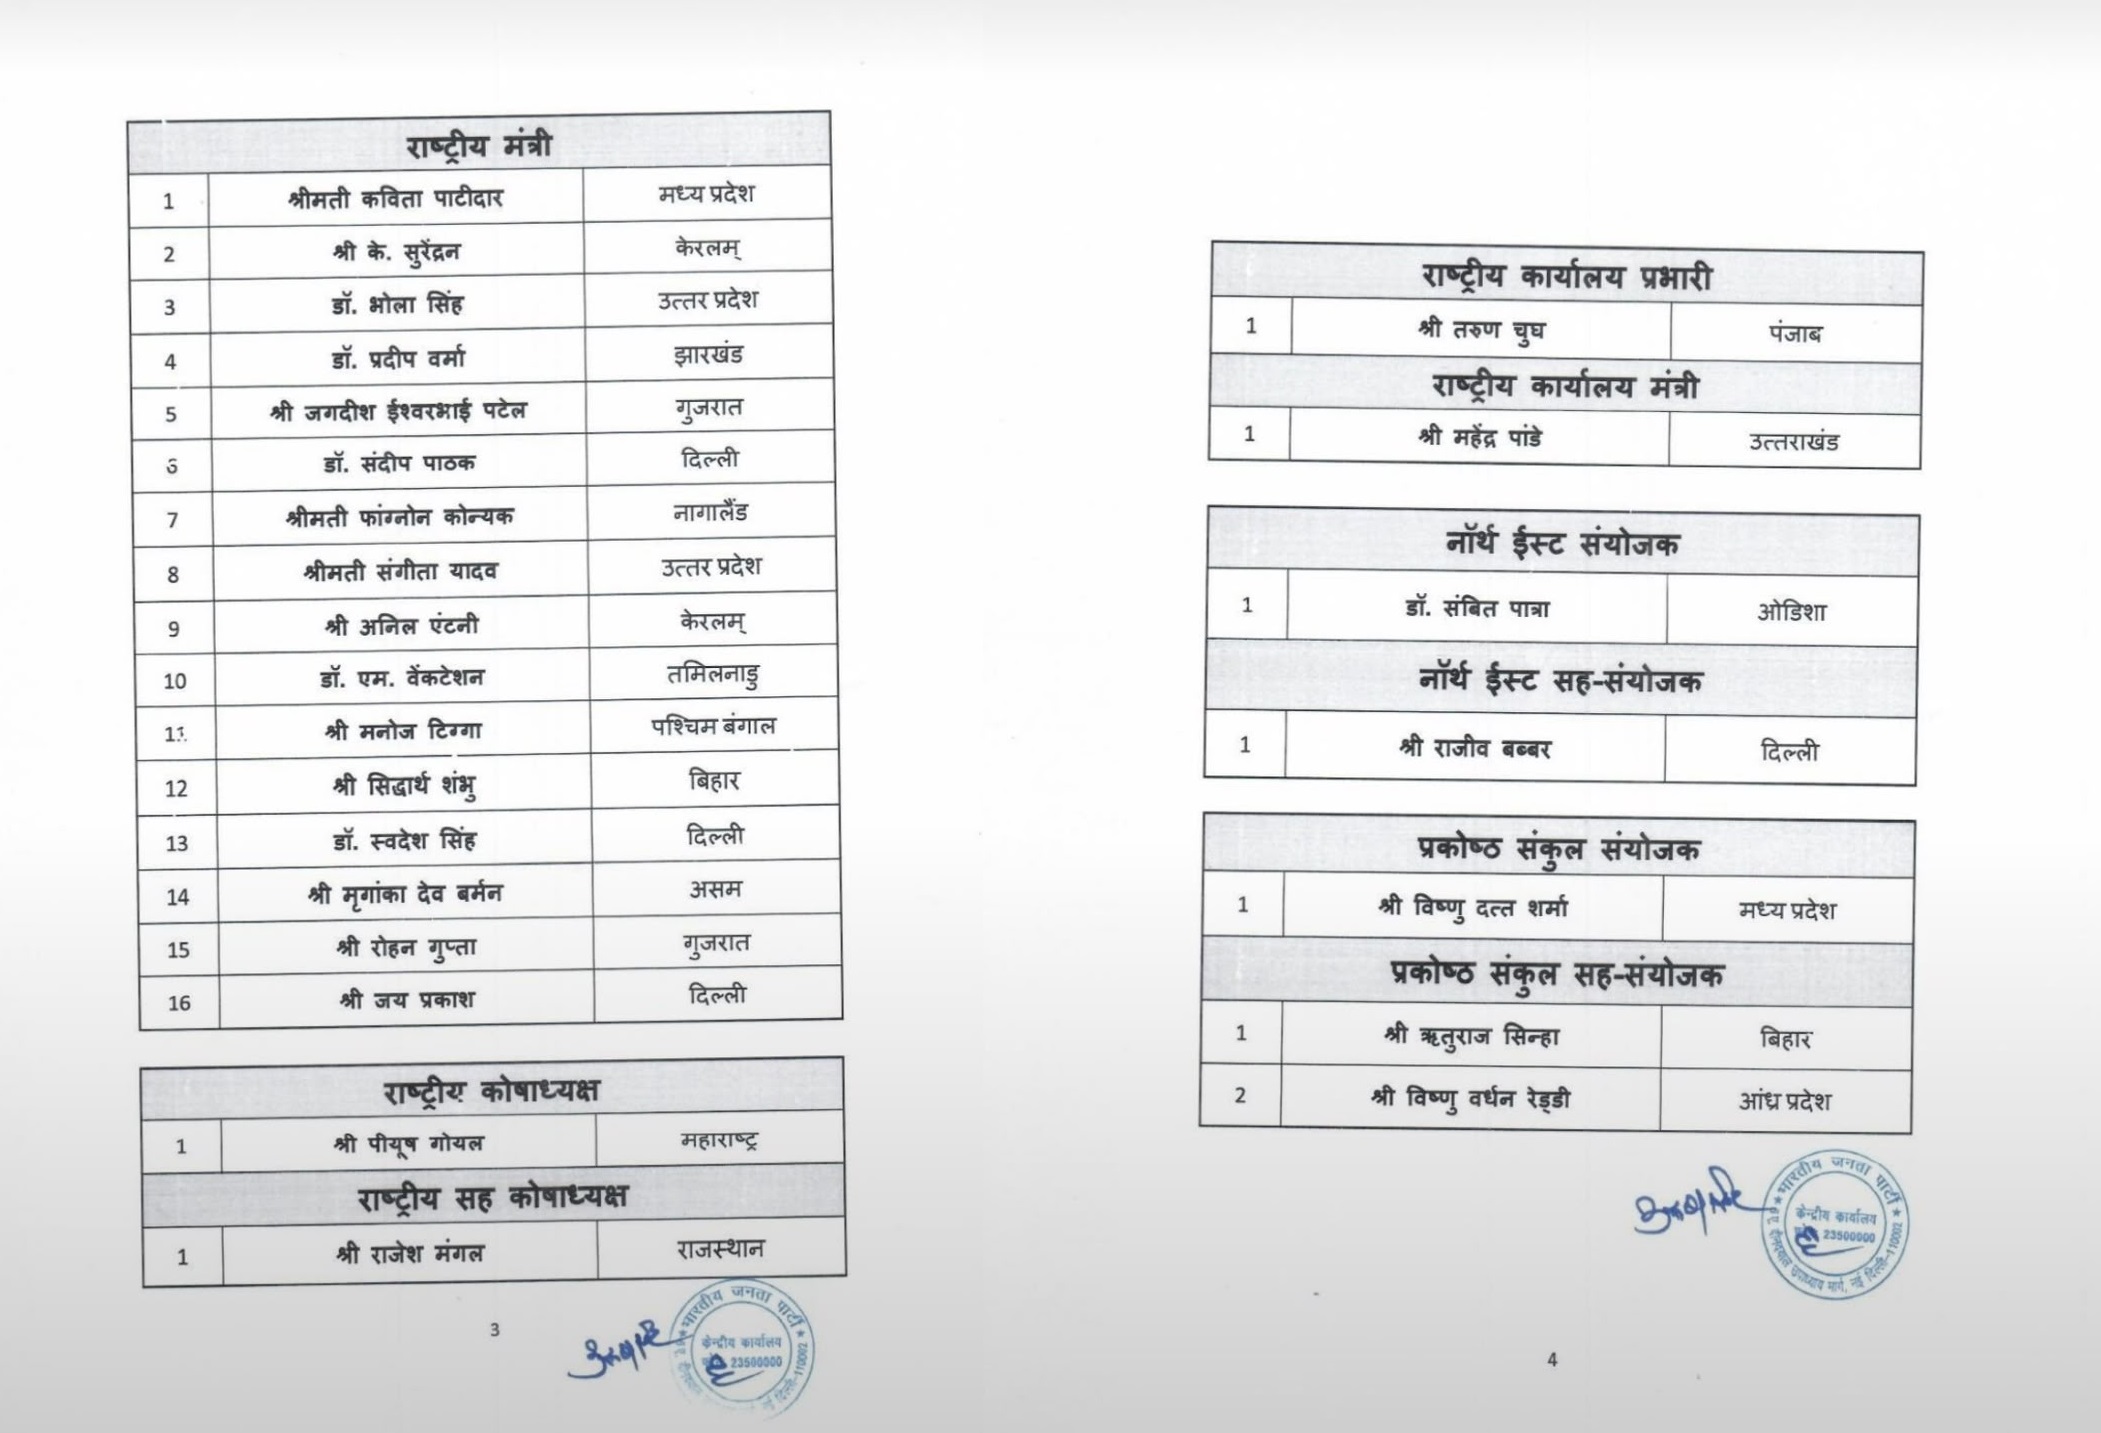 राष्ट्रीय मंत्री
1 श्रीमती कविता पाटीदार मध्य प्रदेश
2 श्री के. सुरेंद्रन केरलम्
3 डॉ. भोला सिंह उत्तर प्रदेश
4 डॉ. प्रदीप वर्मा झारखंड
5 श्री जगदीश ईश्वरभाई पटेल गुजरात
6 डॉ. संदीप पाठक दिल्ली
7 श्रीमती फांग्नोन कोन्यक नागालैंड
8 श्रीमती संगीता यादव उत्तर प्रदेश
9 श्री अनिल एंटनी केरलम्
10 डॉ. एम. वेंकटेशन तमिलनाडु
11 श्री मनोज टिग्गा पश्चिम बंगाल
12 श्री सिद्धार्थ शंभु बिहार
13 डॉ. स्वदेश सिंह दिल्ली
14 श्री मृगांका देव बर्मन असम
15 श्री रोहन गुप्ता गुजरात
16 श्री जय प्रकाश दिल्ली
राष्ट्रीय कोषाध्यक्ष
1 श्री पीयूष गोयल महाराष्ट्र
राष्ट्रीय सह कोषाध्यक्ष
1 श्री राजेश मंगल राजस्थान
भारतीय जनता पार्टी
केन्द्रीय कार्यालय
23500000
नई दिल्ली-110002
3
राष्ट्रीय कार्यालय प्रभारी
1 श्री तरुण चुघ पंजाब
राष्ट्रीय कार्यालय मंत्री
1 श्री महेंद्र पांडे उत्तराखंड
नॉर्थ ईस्ट संयोजक
1 डॉ. संबित पात्रा ओडिशा
नॉर्थ ईस्ट सह-संयोजक
1 श्री राजीव बब्बर दिल्ली
प्रकोष्ठ संकुल संयोजक
1 श्री विष्णु दत्त शर्मा मध्य प्रदेश
प्रकोष्ठ संकुल सह-संयोजक
1 श्री ऋतुराज सिन्हा बिहार
2 श्री विष्णु वर्धन रेड्डी आंध्र प्रदेश
भारतीय जनता पार्टी
केन्द्रीय कार्यालय
23500000
दीनदयाल उपाध्याय मार्ग, नई दिल्ली-110002
4